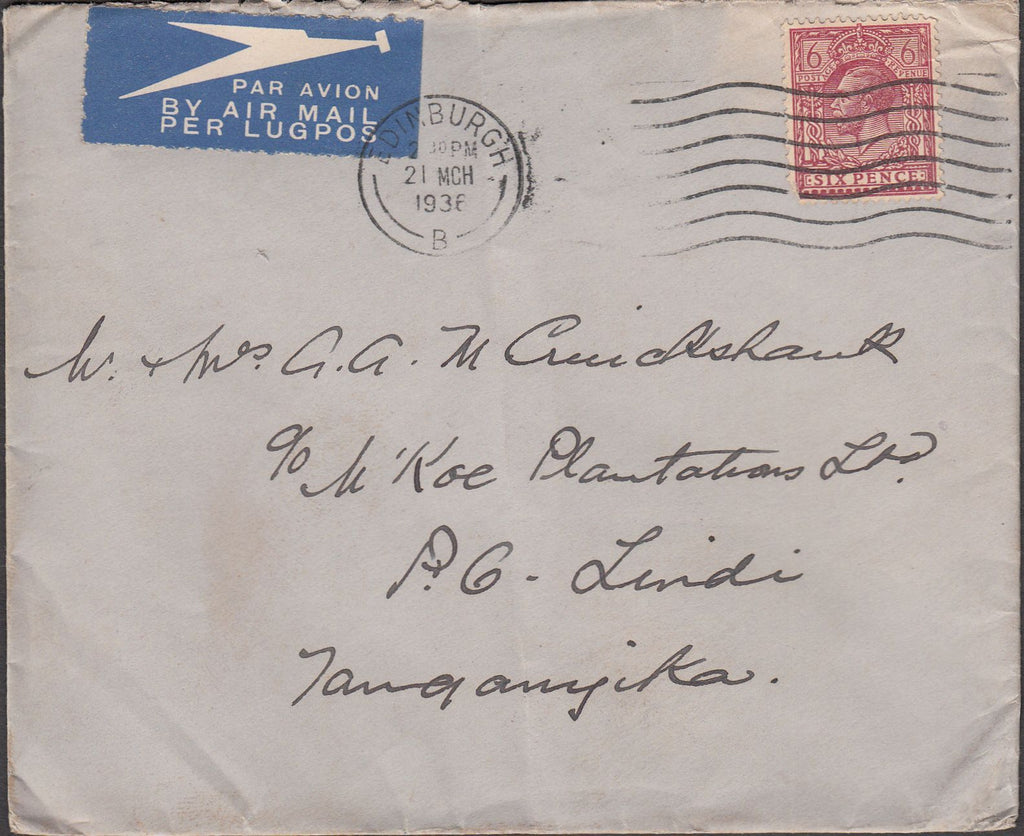 PAR AVION
BY AIR MAIL
PER LUGPOS
EDINBURGH
PM
21 MCH
1936
B
6 6
POSTAGE REVENUE
SIX PENCE
Mr. & Mrs. A. A. M Cruickshank
c/o M'Koe Plantations Ltd.
P.O. Lindi
Tanganyika.